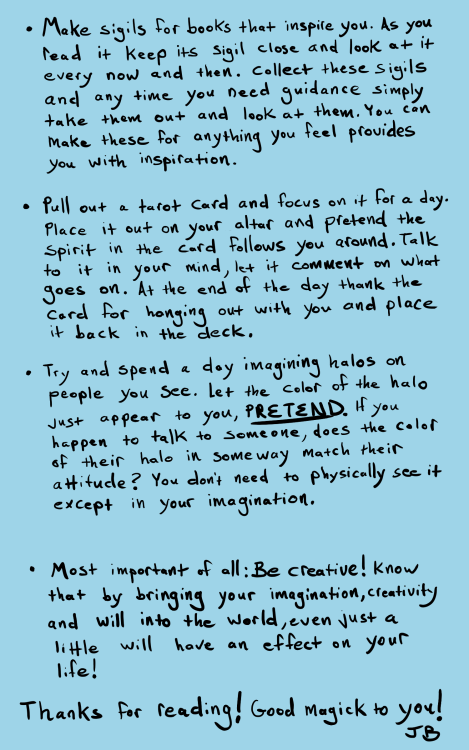 • Make sigils for books that inspire you. As you
read it keep its sigil close and look at it
every now and then. Collect these sigils
and any time you need guidance simply
take them out and look at them. You can
make these for anything you feel provides
you with inspiration.
• Pull out a tarot card and focus on it for a day.
Place it out on your altar and pretend the
spirit in the card follows you around. Talk
to it in your mind, let it comment on what
goes on. At the end of the day thank the
card for hanging out with you and place
it back in the deck.
• Try and spend a day imagining halos on
people you see. Let the color of the halo
just appear to you, PRETEND. If you
happen to talk to someone, does the color
of their halo in someway match their
attitude? You don't need to physically see it
except in your imagination.
• Most important of all: Be creative! Know
that by bringing your imagination, creativity
and will into the world, even just a
little will have an effect on your
life!
Thanks for reading! Good Magick to you!
JB